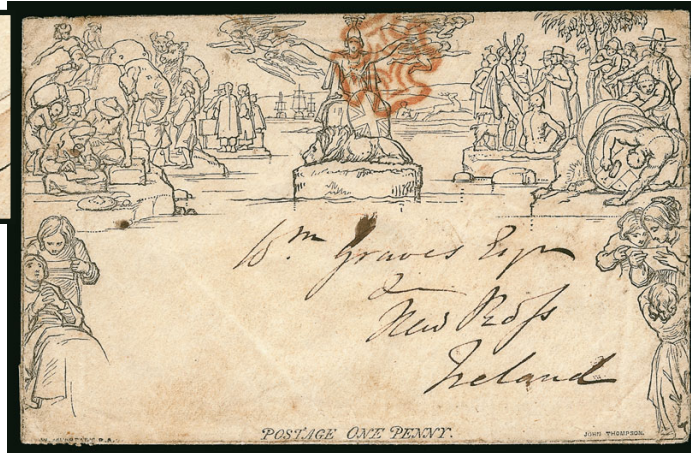 Wm Graves Esqr
New Ross
Ireland
POSTAGE ONE PENNY.
JOHN THOMPSON.